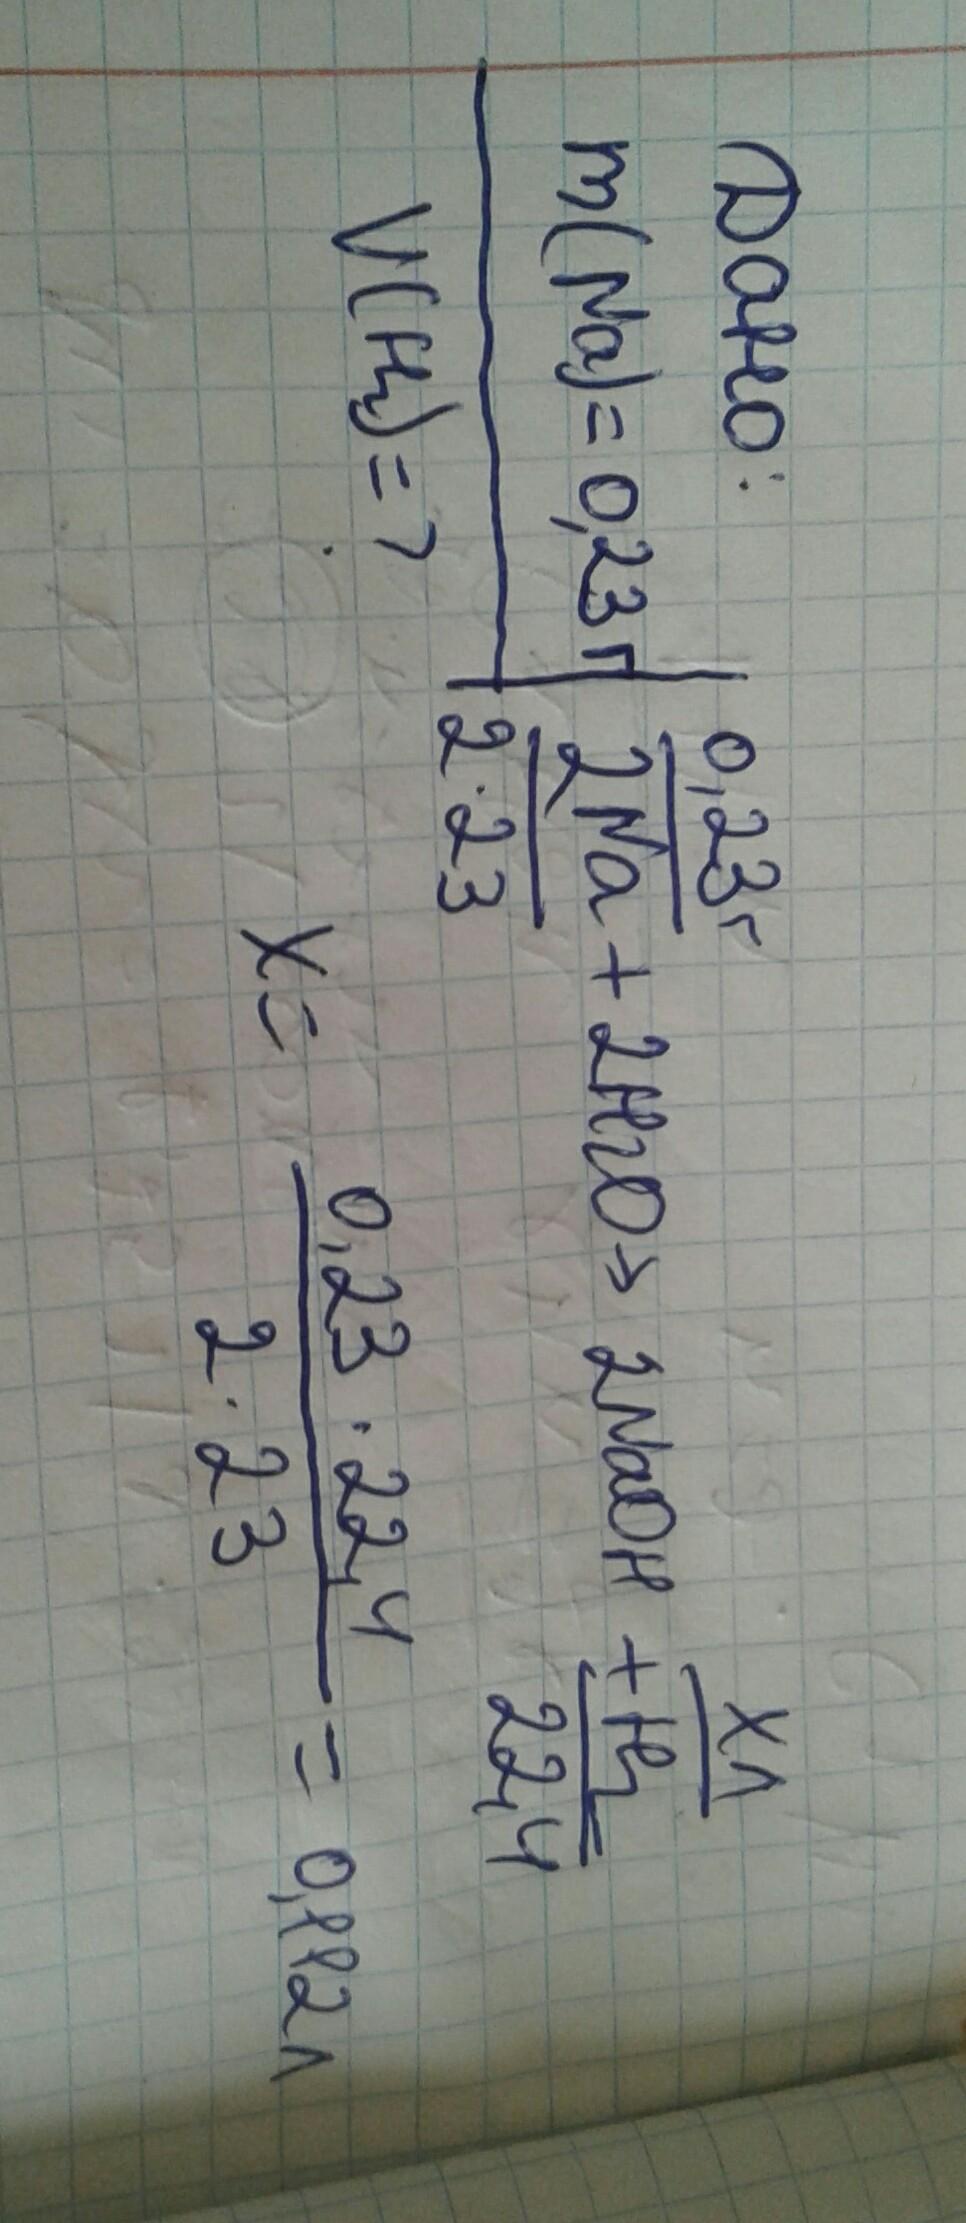 Дано:
m(Na)=0,23г
V(H2)=?
0,23г xл
2Na + 2H2O > 2NaOH + H2
2·23 22,4
x= 0,23·22,4
2·23
= 0,112л